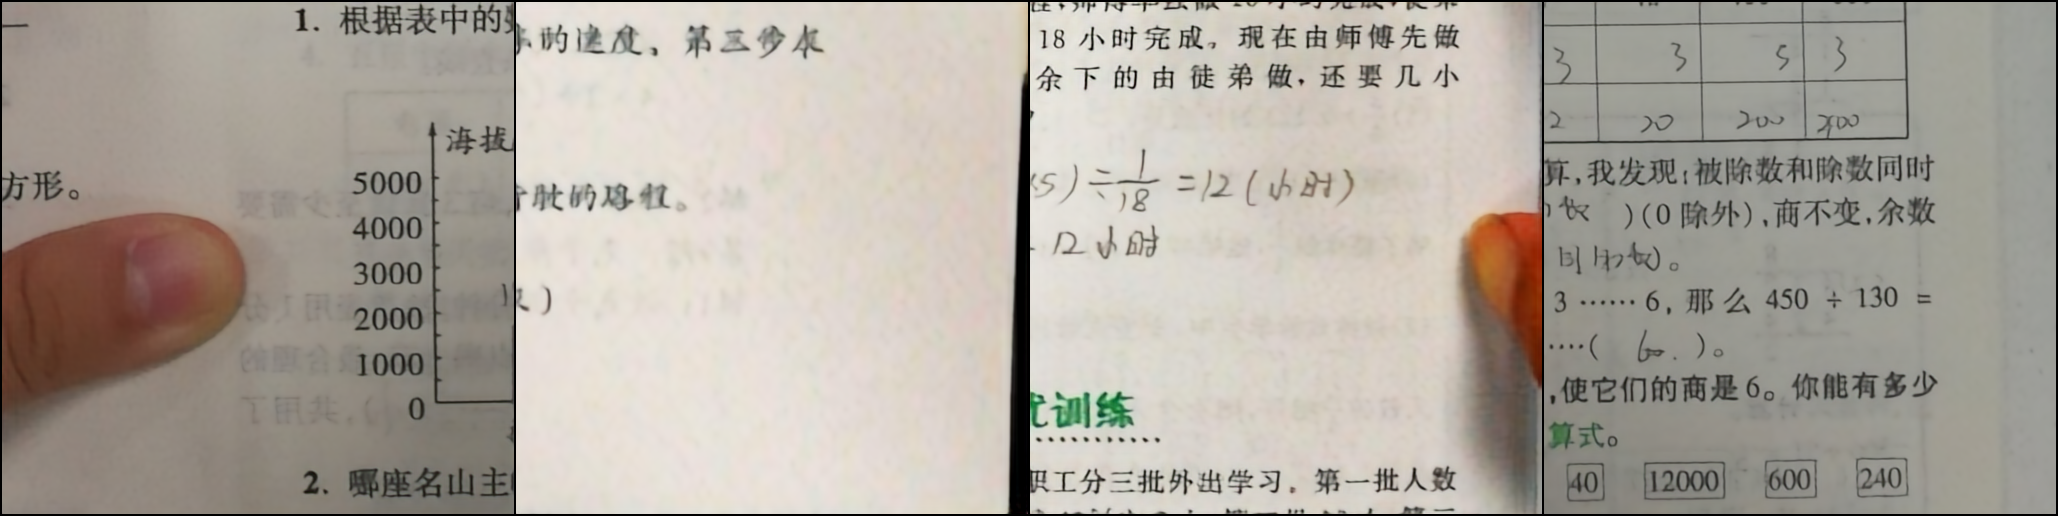 1. 根据表中的
方形。
海拔
5000
4000
3000
2000
1000
0
2. 哪座名山主
的速度、第三步求
的路程。
)
18 小时完成。现在由师傅先做
余下的由徒弟做,还要几小
5)÷1/18=12(小时)
12小时
训练
职工分三批外出学习。第一批人数
3 3 5 3
2 20 200 200
算,我发现:被除数和除数同时
)(0 除外),商不变,余数
)。
3 …… 6, 那么 450 ÷ 130 =
…·( 60. )。
,使它们的商是 6。你能有多少
算式。
40 12000 600 240